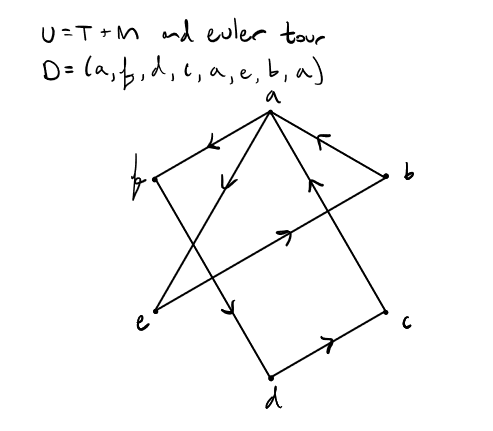 U = T + M and euler tour
D = (a, f, d, c, a, e, b, a)
a
f
b
e
c
d